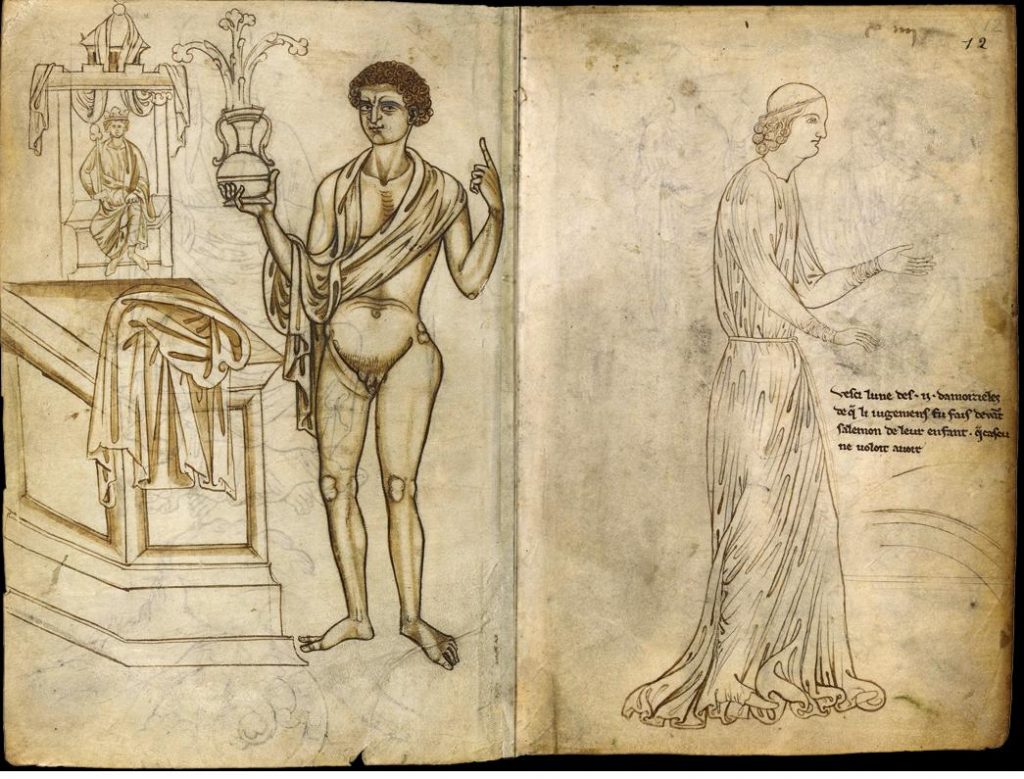 12
vesci lune des · ij · damoizieles
de q̃ li iugemens fu fais devãt
salemon de leur enfant · q̃ cascu
ne uoloit auoir